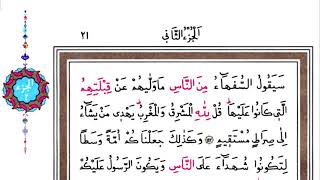 الجزء الثاني
٢١
سَيَقُولُ السُّفَهَاءُ مِنَ النَّاسِ مَا وَلّٰيهُمْ عَنْ قِبْلَتِهِمُ
الَّتٖي كَانُوا عَلَيْهَا قُلْ لِلّٰهِ الْمَشْرِقُ وَالْمَغْرِبُ يَهْدٖي مَنْ يَشَاءُ
اِلٰى صِرَاطٍ مُسْتَقٖيمٍ وَكَذٰلِكَ جَعَلْنَاكُمْ اُمَّةً وَسَطًا
لِتَكُونُوا شُهَدَاءَ عَلَى النَّاسِ وَيَكُونَ الرَّسُولُ عَلَيْكُمْ